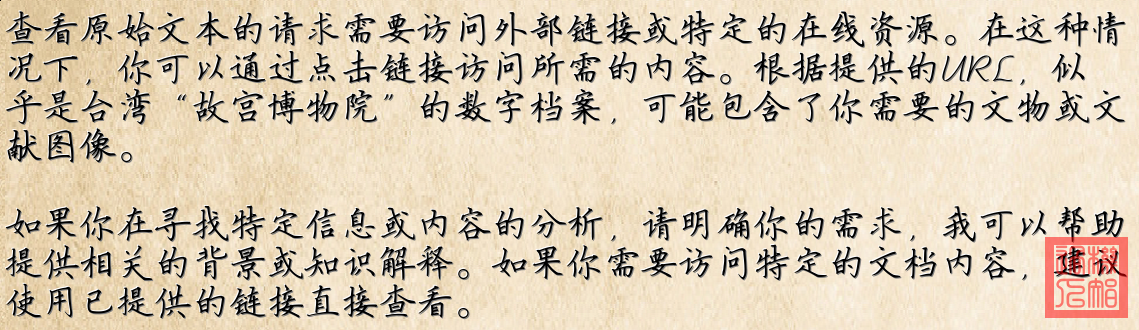 查看原始文本的请求需要访问外部链接或特定的在线资源。在这种情
况下，你可以通过点击链接访问所需的内容。根据提供的URL，似
乎是台湾“故宫博物院”的数字档案，可能包含了你需要的文物或文
献图像。
如果你在寻找特定信息或内容的分析，请明确你的需求，我可以帮助
提供相关的背景或知识解释。如果你需要访问特定的文档内容，建议
使用已提供的链接直接查看。